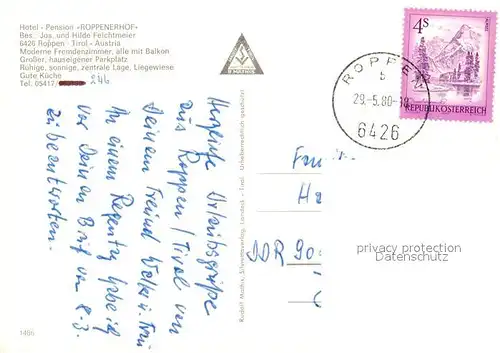 Hotel - Pension »ROPPENERHOF«
Bes. Jos. und Hilde Feichtmeier
6426 Roppen - Tirol - Austria
Moderne Fremdenzimmer, alle mit Balkon
Großer, hauseigener Parkplatz
Ruhige, sonnige, zentrale Lage, Liegewiese
Gute Küche
Tel. 05417/ 246
4S
REPUBLIK ÖSTERREICH
ROPPEN
b
29.-5.80-
6426
Herzliche Urlaubsgrüße
aus Roppen/Tirol von
Deinem Freund
An einem Regentag
vor Deinen Brief vom 8.3.
zu beantworten.
Rudolf Mathis, Silvrettaverlag, Landeck - Tirol. Urheberrechtlich geschützt
DDR 90
privacy protection
Datenschutz
1486